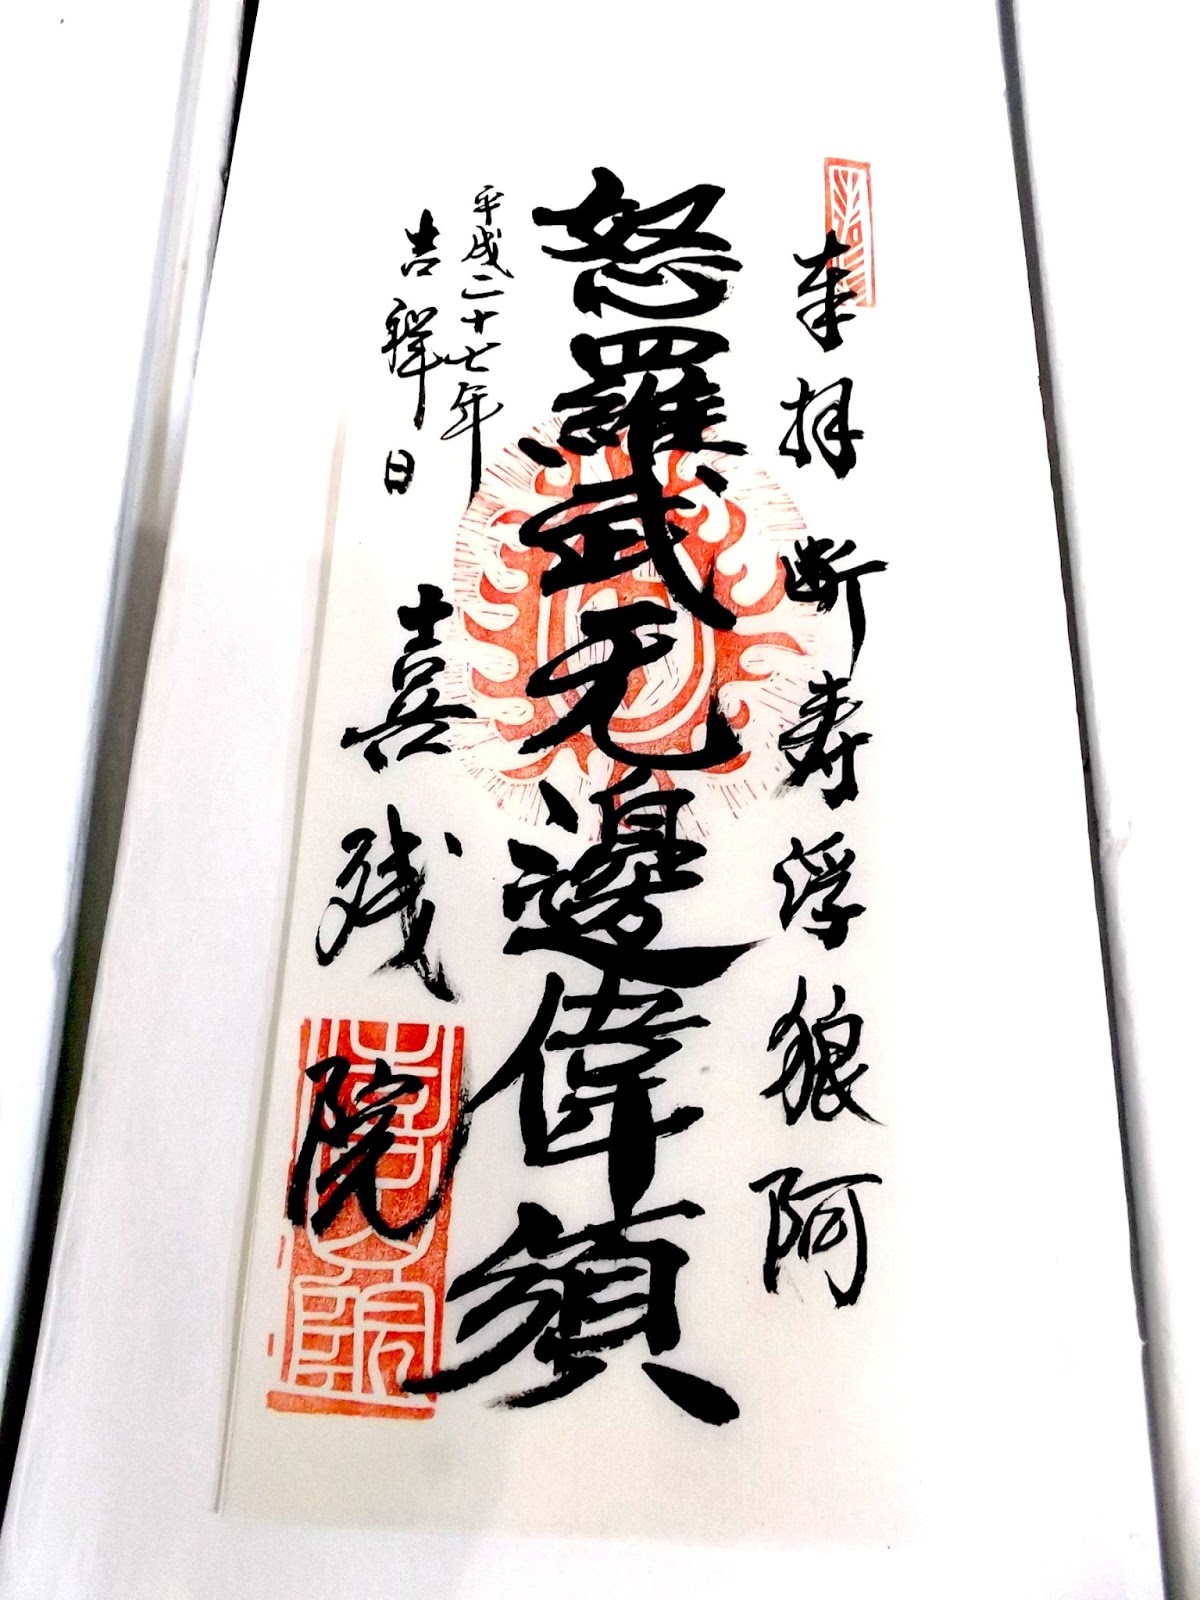 奉拝 断寿浮狼阿
怒羅武无邊偉須
平成二十七年
吉祥日
喜残院